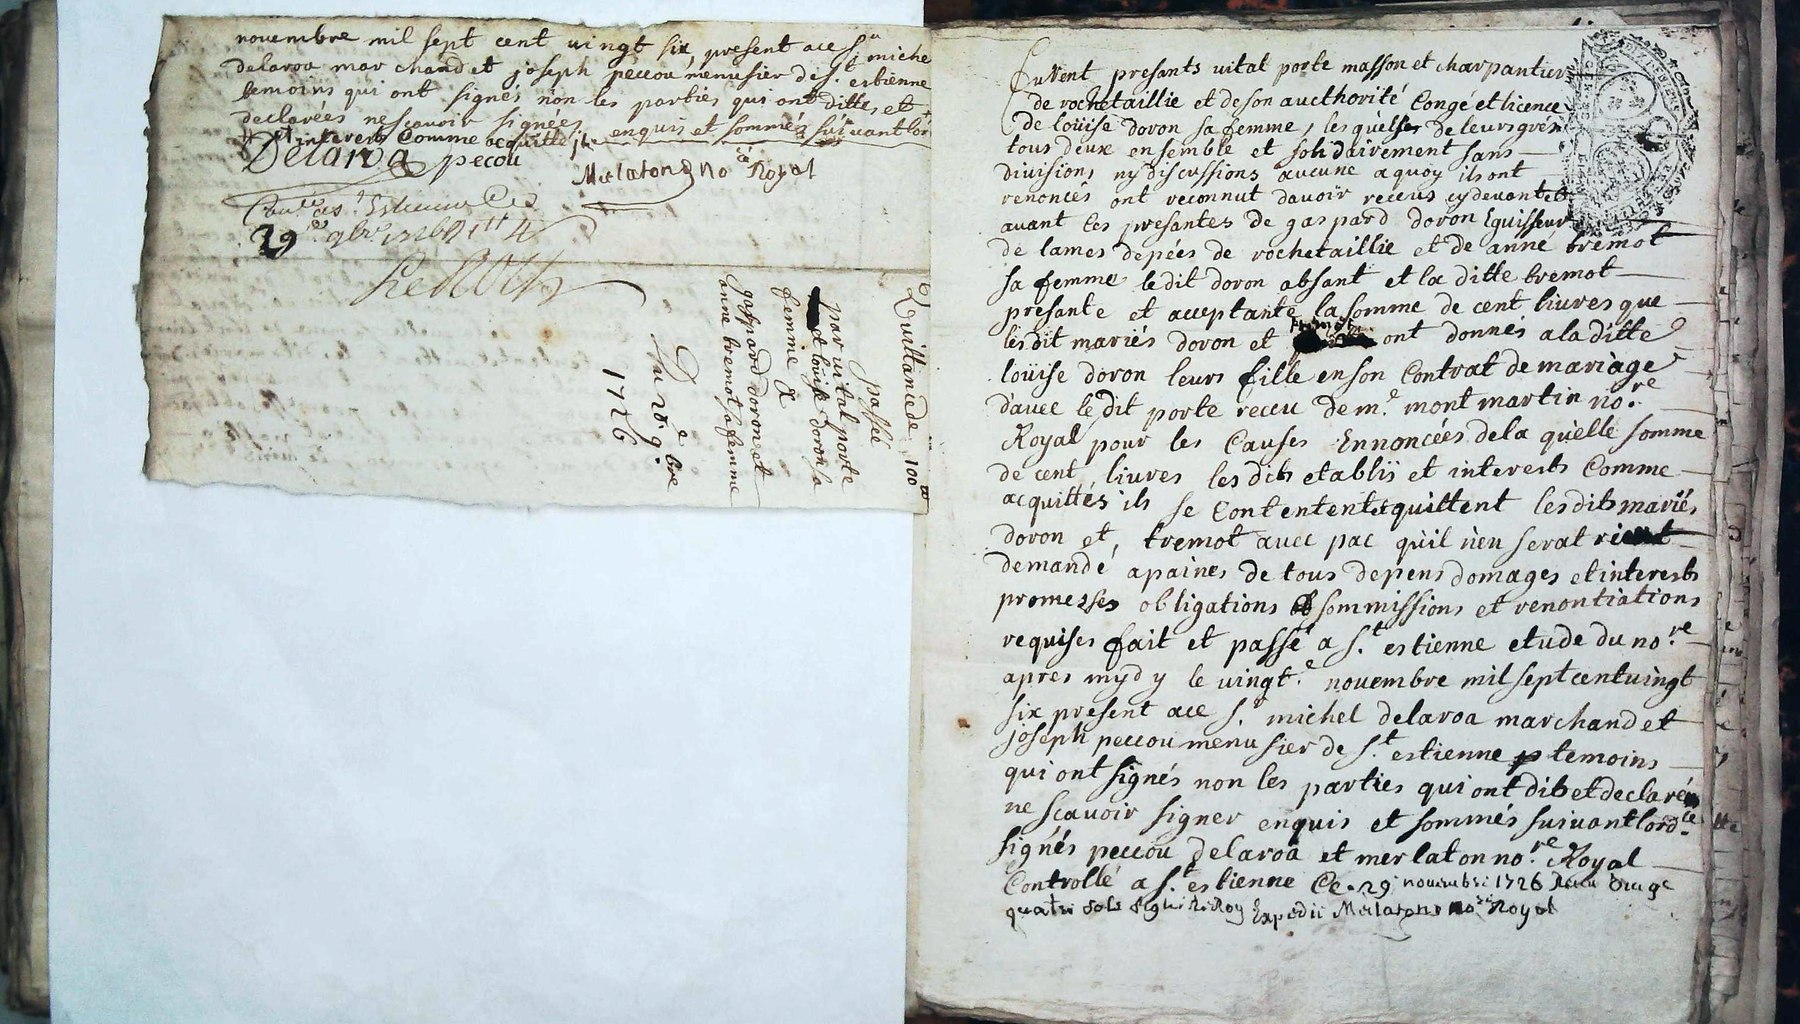 novembre mil sept cent vingt six, present ace s.r miche
delaroa marchand et joseph peccou menusier de s.t estienne
temoins qui ont signés non les parties qui ont dittes et
declarées ne scavoir signées enquis et sommés suivant lor
et interests Comme acquittés
Delaroa peccou
Merlaton no.re Royal
29
passée
Quittance de 100
par vital porte
et loüise doron sa
femme &
gaspard doron et
anne tremot sa femme
Du 20.e 9.bre
1726
furent presants vital porte masson et charpantier
de rochetaillie et de son aucthorité Congé et licence
de loüise doron sa femme, lesquelles de leurs grés
tous deux ensemble et solidairement sans
divisions ny discussions aucune a quoy ils ont
renoncés ont reconnut davoir receus cy devant et
avant les presantes de gaspard doron Eguisseur
de lames depées de rochetaillie et de anne tremot
sa femme ledit doron absant et la ditte tremot
presante et acceptante la somme de cent livres que
lesdit mariés doron et tremot ont donnés a la ditte
loüise doron leurs fille en son Contrat de mariage
davec le dit porte receu de m.e montmartin no.re
Royal pour les Causes Ennoncées de la quelle somme
de cent livres les dits etablis et interests Comme
acquittés ils se Contentent et quittent les dits mariés
doron et tremot avec pac quil nen serat rient
demandé a paines de tous depens domages et interests
promesses obligations sommissions et renontiations
requises fait et passé a s.t estienne etude du no.re
apres mydy le vingt.e novembre mil sept cent vingt
six present ace s.r michel delaroa marchand et
joseph peccou menusier de s.t estienne temoins
qui ont signés non les parties qui ont dits et declarés
ne scavoir signer enquis et sommés suivant lord.ce
signés peccou delaroa et merlaton no.re Royal
Controllé a s.t estienne Ce 29 novembre 1726
quatre sols signé Expedié Merlaton no.re Royal